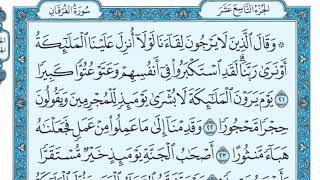 الجزء التاسع عشر
سورة الفرقان
۞ وَقَالَ ٱلَّذِينَ لَا يَرْجُونَ لِقَآءَنَا لَوْلَآ أُنزِلَ عَلَيْنَا ٱلْمَلَٰٓئِكَةُ
أَوْ نَرَىٰ رَبَّنَا لَقَدِ ٱسْتَكْبَرُوا۟ فِىٓ أَنفُسِهِمْ وَعَتَوْ عُتُوًّا كَبِيرًا
٢١ يَوْمَ يَرَوْنَ ٱلْمَلَٰٓئِكَةَ لَا بُشْرَىٰ يَوْمَئِذٍ لِّلْمُجْرِمِينَ وَيَقُولُونَ
حِجْرًا مَّحْجُورًا ٢٢ وَقَدِمْنَآ إِلَىٰ مَا عَمِلُوا۟ مِنْ عَمَلٍ فَجَعَلْنَٰهُ
هَبَآءً مَّنثُورًا ٢٣ أَصْحَٰبُ ٱلْجَنَّةِ يَوْمَئِذٍ خَيْرٌ مُّسْتَقَرًّا